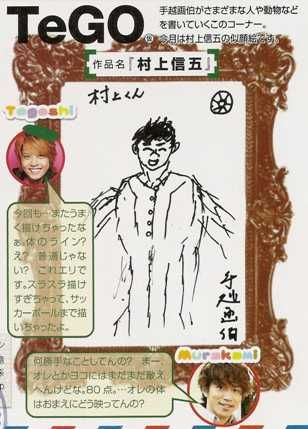 TeGO
手越画伯がさまざまな人や動物など
を書いていくこのコーナー。
今月は村上信五の似顔絵です。
作品名『村上信五』
村上くん
Tegoshi
今回も…またうま
く描けちゃったな
ぁ。体のライン？
え？　普通じゃな
い？　これエリで
す。スラスラ描け
すぎちゃって、サッ
カーボールまで描
いちゃったよ。
手越画伯
Murakami
何勝手なことしてんの？　まー、
オレとかヨコにはまだまだ敵え
へんけどな。80点。…オレの体
はおまえにどう映ってんの？